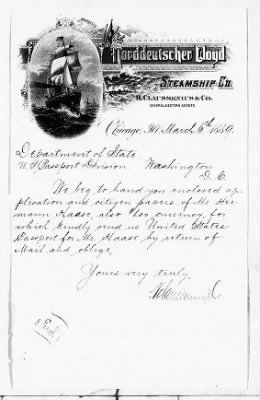 Norddeutscher Lloyd
STEAMSHIP CO.
H. CLAUSSENIUS & CO.
GENERAL WESTERN AGENTS
Chicago, Ill. March 6th 1889.
Department of State
U S Passport Division Washington
D. C.
We beg to hand you enclosed ap-
plication and citizen papers of Mr Her-
mann Haase, also $1.00 currency, for
which kindly send us United States
Passport for Mr. Haase by return of
Mail and oblige,
Yours very truly,
H Claussenius & Co
3 Encl's